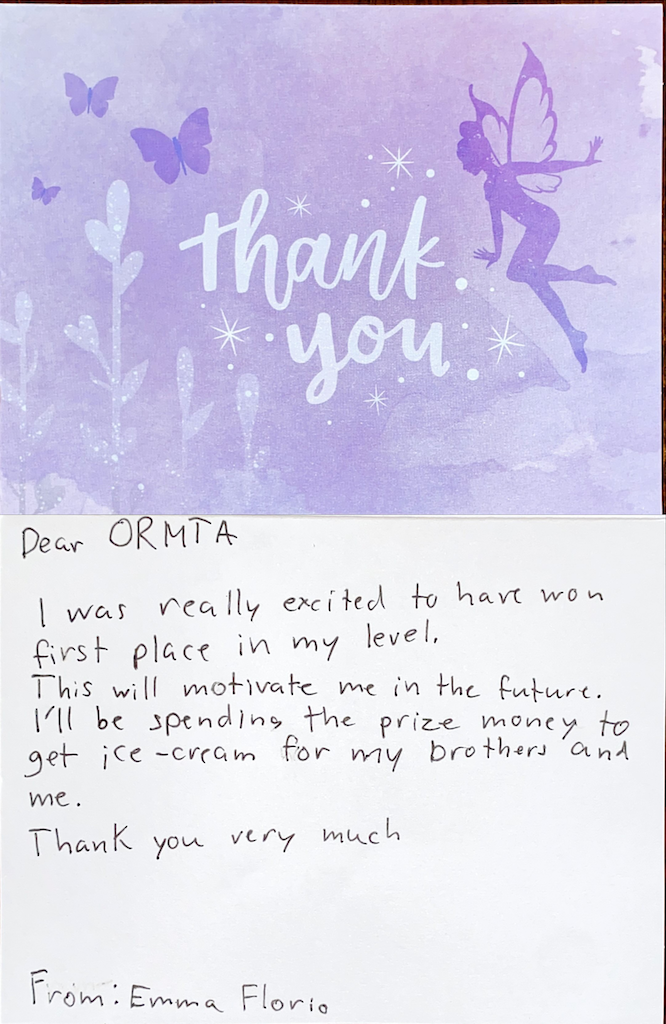 thank
you
Dear ORMTA
I was really excited to have won
first place in my level.
This will motivate me in the future.
I'll be spending the prize money to
get ice-cream for my brothers and
me.
Thank you very much
From: Emma Florio